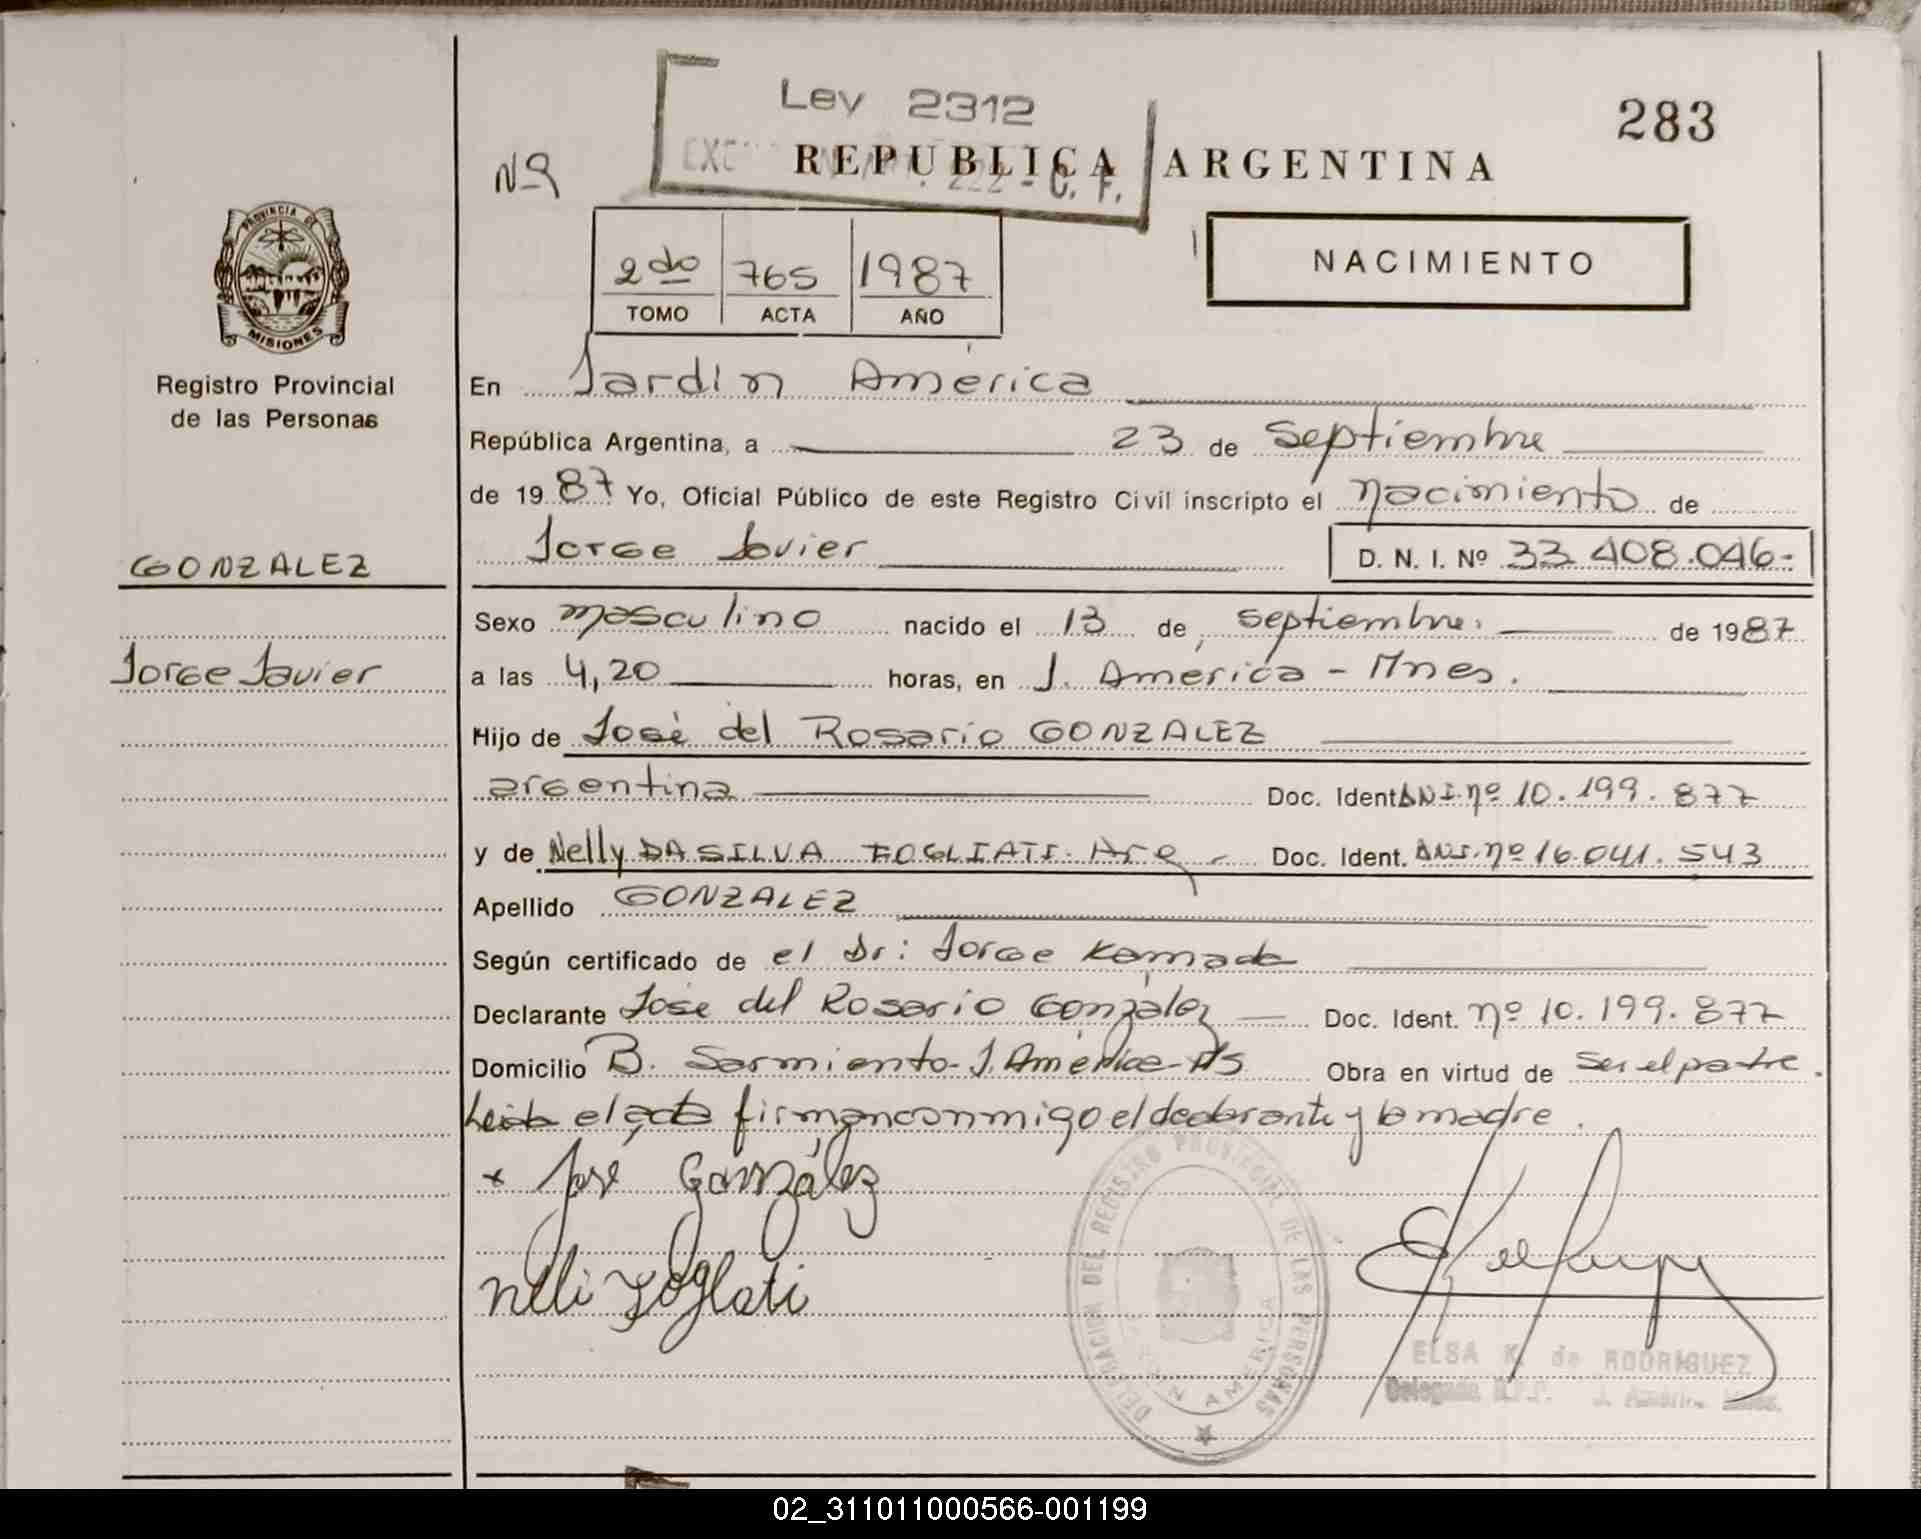 Ley 2312
283
Nº
REPUBLICA ARGENTINA
222 - C. F.
PROVINCIA DE
MISIONES
2do 765 1987
TOMO ACTA AÑO
NACIMIENTO
Registro Provincial
de las Personas
En Jardín América
República Argentina, a 23 de septiembre
de 1987 Yo, Oficial Público de este Registro Civil inscripto el nacimiento de
GONZALEZ
Jorge Javier D. N. I. Nº 33.408.046-
Sexo masculino nacido el 13 de septiembre. de 1987
Jorge Javier
a las 4,20 horas, en J. América - Mnes.
Hijo de José del Rosario GONZALEZ
argentina Doc. Ident. DNI. nº 10.199.877
y de Nelly DA SILVA FOGLIATI. Arg Doc. Ident. DNI. nº 16.041.543
Apellido GONZALEZ
Según certificado de el Dr: Jorge Kamada
Declarante José del Rosario González Doc. Ident. nº 10.199.877
Domicilio B. Sarmiento - J. América - Ms Obra en virtud de ser el padre.
Leida el acta firman conmigo el declarante y la madre.
x José González
Nelli Foglati
DELEGACION DEL REGISTRO PROVINCIAL DE LAS PERSONAS
AMERICA
ELSA K. de RODRIGUEZ
Delegada R.P.P. J. América
02_311011000566-001199